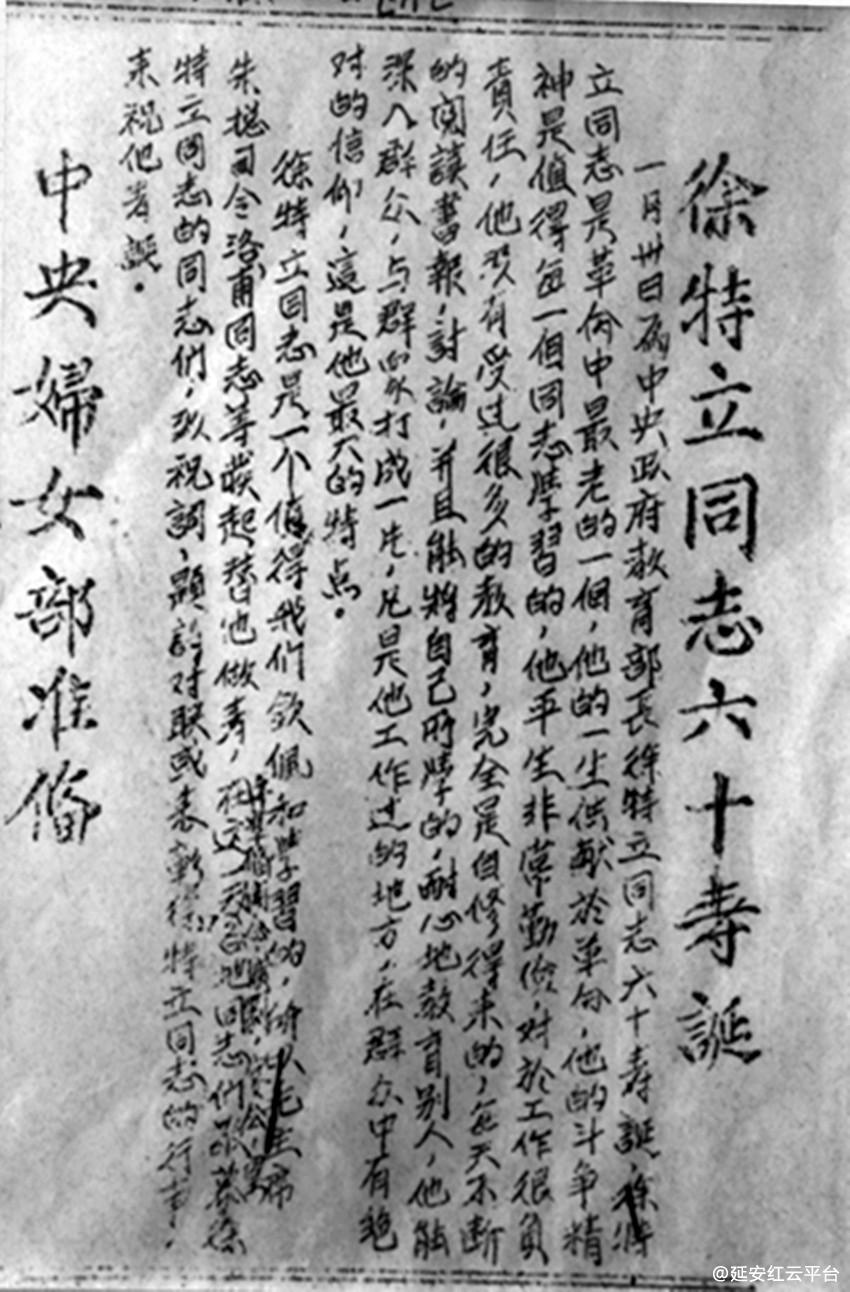 徐特立同志六十寿誕
一月卅日為中央政府教育部長徐特立同志六十寿誕，徐特
立同志是革命中最老的一個，他的一生供献於革命，他的斗争精
神是值得每一個同志學習的，他平生非常勤儉，对於工作很負
責任，他没有受过很多的教育，完全是自修得来的，每天不断
的阅讀書報，討論，并且能将自己所學的，耐心地教育别人，他能
深入群众，与群眾打成一片，凡是他工作过的地方，在群众中有絶
对的信仰，這是他最大的特点。
徐特立同志是一个值得我们欽佩和學習的，所以毛主席
朱總司令洛甫同志等發起替他做寿，在这一天各地同志们
特立同志的同志们，致祝詞，題詩对联或表彰徐特立同志的行事，
来祝他寿誕。
中央婦女部准备
@延安红云平台